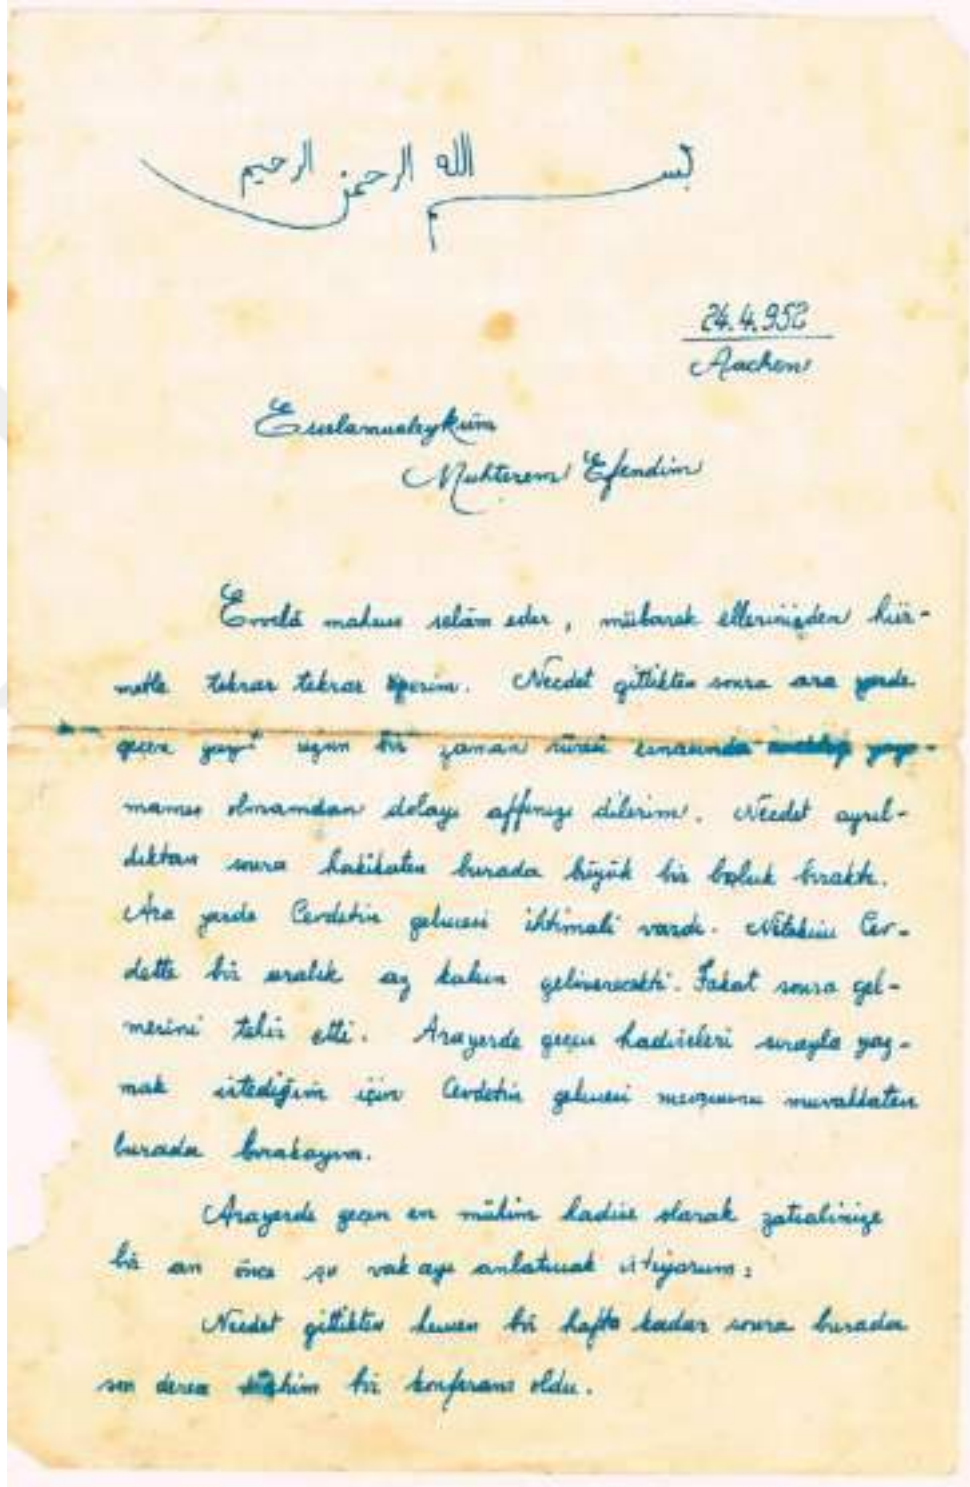 بسم الله الرحمن الرحيم
24.4.952
Aachen
Esselamualeyküm
Muhterem Efendim
Evvelâ mahsus selâm eder, mübarek ellerinizden hür-
metle tekrar tekrar öperim. Necdet gittikten sonra ara yerde
geçen uzun bir zaman süresi esnasında yaza-
mamış olmamdan dolayı affınızı dilerim. Necdet ayrıl-
dıktan sonra hakikaten burada büyük bir boşluk bıraktı.
Ara yerde Cevdetin gelmesi ihtimali vardı. Nitekim Cev-
dette bir aralık az kalsın geliverecekti. Fakat sonra gel-
mesini tehir etti. Arayerde geçen hadiseleri sırayla yaz-
mak istediğim için Cevdetin gelmesi mevzuunu muvakkaten
burada bırakayım.
Arayerde geçen en mühim hadise olarak zatıalinize
bir an önce şu vak ayı anlatmak istiyorum:
Necdet gittikten hemen bir hafta kadar sonra burada
son derece mühim bir konferans oldu.